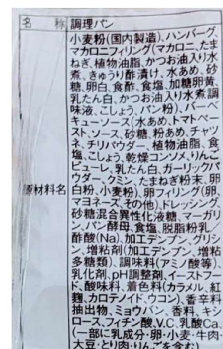 名 称 調理パン
小麦粉(国内製造)、ハンバーグ、
マカロニフィリング(マカロニ、たま
ねぎ、植物油脂、かつお油入り水
煮、きゅうり酢漬け、水あめ、砂
糖、卵白、食酢、食塩、加糖卵黄、
乳たん白、かつお油入り水煮調
味液、こしょう)、パン粉)、バーベ
キューソース(水あめ、トマトペー
スト、ソース、砂糖、粉あめ、チャツ
ネ、チリパウダー、植物油脂、食
塩、こしょう、乾燥コンソメ、りんご
ピューレ、乳たん白、ガーリックパ
ウダー、クミン、たまねぎ粉末、卵
原材料名 白粉、小麦粉)、卵フィリング(卵、
マヨネーズ、その他)、ドレッシング、
砂糖混合異性化液糖、マーガリ
ン、パン酵母、食塩、脱脂粉乳、
酢酸(Na)、加工デンプン、グリシ
ン、増粘剤(加工デンプン、増粘
多糖類)、調味料(アミノ酸等)、
乳化剤、pH調整剤、イーストフー
ド、酸味料、着色料(カラメル、紅
麹、カロテノイド、ウコン)、香辛料
抽出物、ミョウバン、香料、キシ
ロース、フィチン酸、V.C、乳酸Ca、
(一部に乳成分・卵・小麦・牛肉・
大豆・とり肉・りんごを含む)